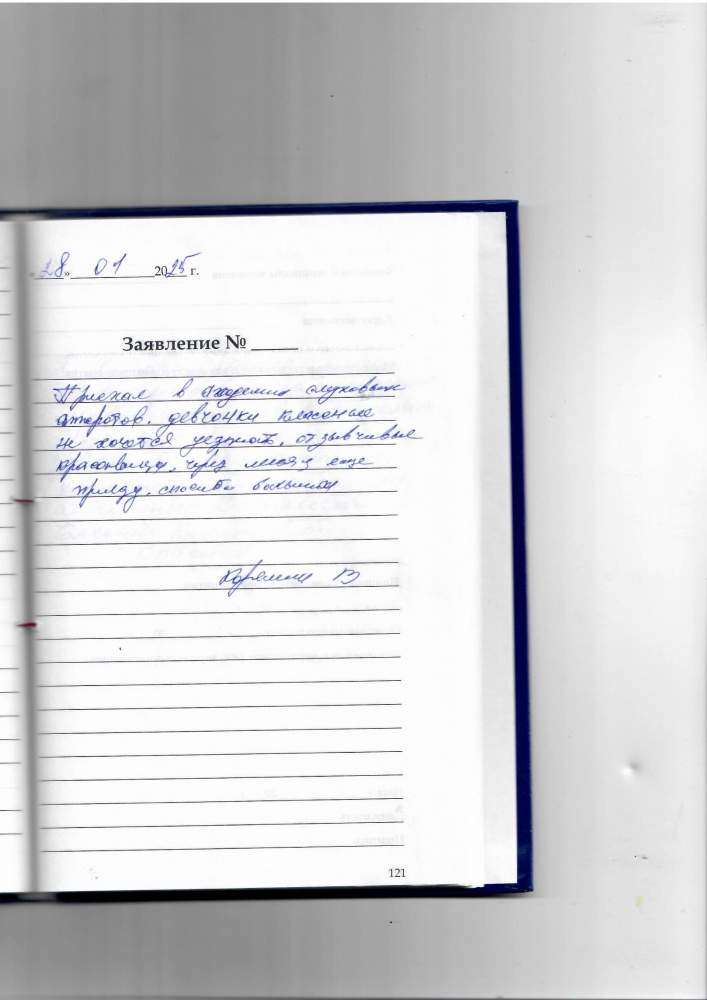 «28» 01 2025 г.
Заявление № 
Приехал в академию слуховых
аппаратов, девчонки класные
не хочется уезжать, отзывчивые
красавицы, через месяц еще
приеду, спасибо большое
В
121